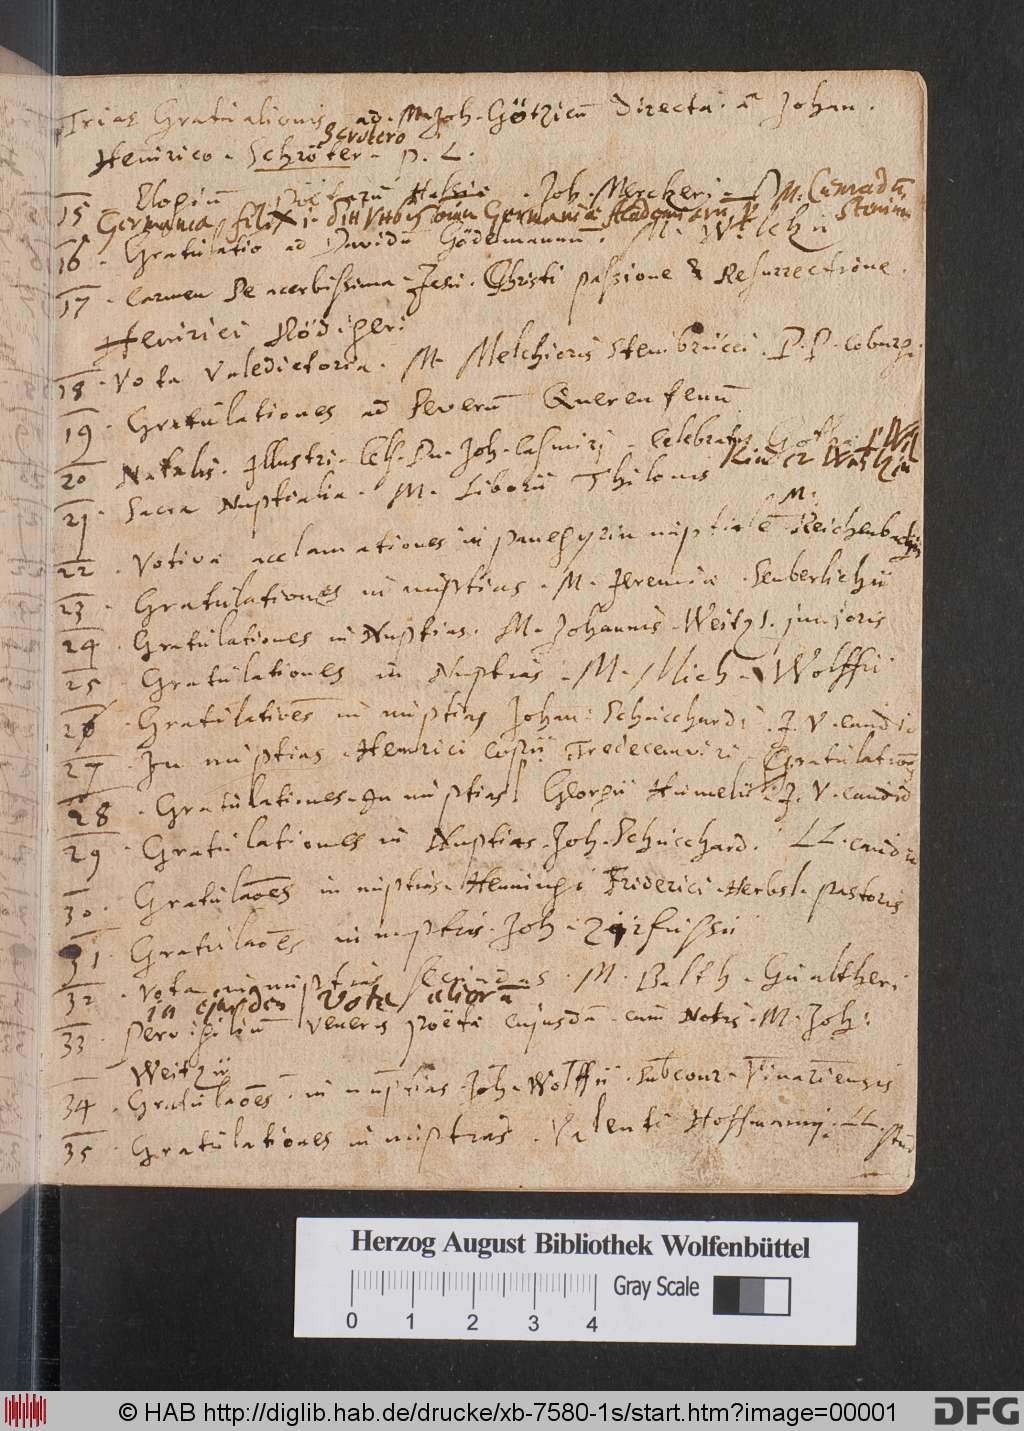 Trias Gratulationis ad M. Joh. Götzium Directa. a Johan.
Scrotero
Henrico Schröter P. L.
15 Elogium Joh. Mercheri
Germania felix Germaniæ Academiarū, M. Cunradū
16 Gratulatio ad Davidū Gödemannū. M.
17 Carmen De acerbissima Jesu Christi passione & Resurrectione.
Henrici Rödigeri
18 Vota Valedictoria. M. Melchioris Steinbrücci. P. P. Coburgi
19 Gratulationes ad Severū Querenfenū
20 Natalis Illustri. Cels. Dn. Joh. Casmiri celebratus
21 Sacra Nuptialia. M. Liborii Thilonis
M.
22 Votivæ acclamationes in panegyrin nuptialē Reichenbachij
23 Gratulationes in nuptias M. Jeremiæ Seuberlichii
24 Gratulationes in Nuptias. M. Johannis Weitzi. junioris
25 Gratulationes in Nuptias M. Mich. Wolffii
26 Gratulationes in nuptias Johan: Schucchardi J. V. candid
27 In nuptias Henrici Cupii Tredecemviri Gratulationes
28 Gratulationes In nuptias Georgii Humelii J. V. candid
29 Gratulationes in Nuptias Joh. Schucchard. LL. candid
30 Gratulaōes in nuptias Henningi Friderici Herbst pastoris
31 Gratulaōes in nuptias Joh. Zirfussii
32 Vota in nuptias secundas M. Balth. Gualtheri
in ejusdem Vota aliora
33 Pervigiliū Veneris poëtæ cujusdā cum Notis M. Joh:
Weitzii
34 Gratulaōes in nuptias Joh. Wolffii Subconr. Vinariensis
35 Gratulationes in nuptias Valenti Hoffmanni LL. stud
Herzog August Bibliothek Wolfenbüttel
Gray Scale
0 1 2 3 4
© HAB http://diglib.hab.de/drucke/xb-7580-1s/start.htm?image=00001
DFG